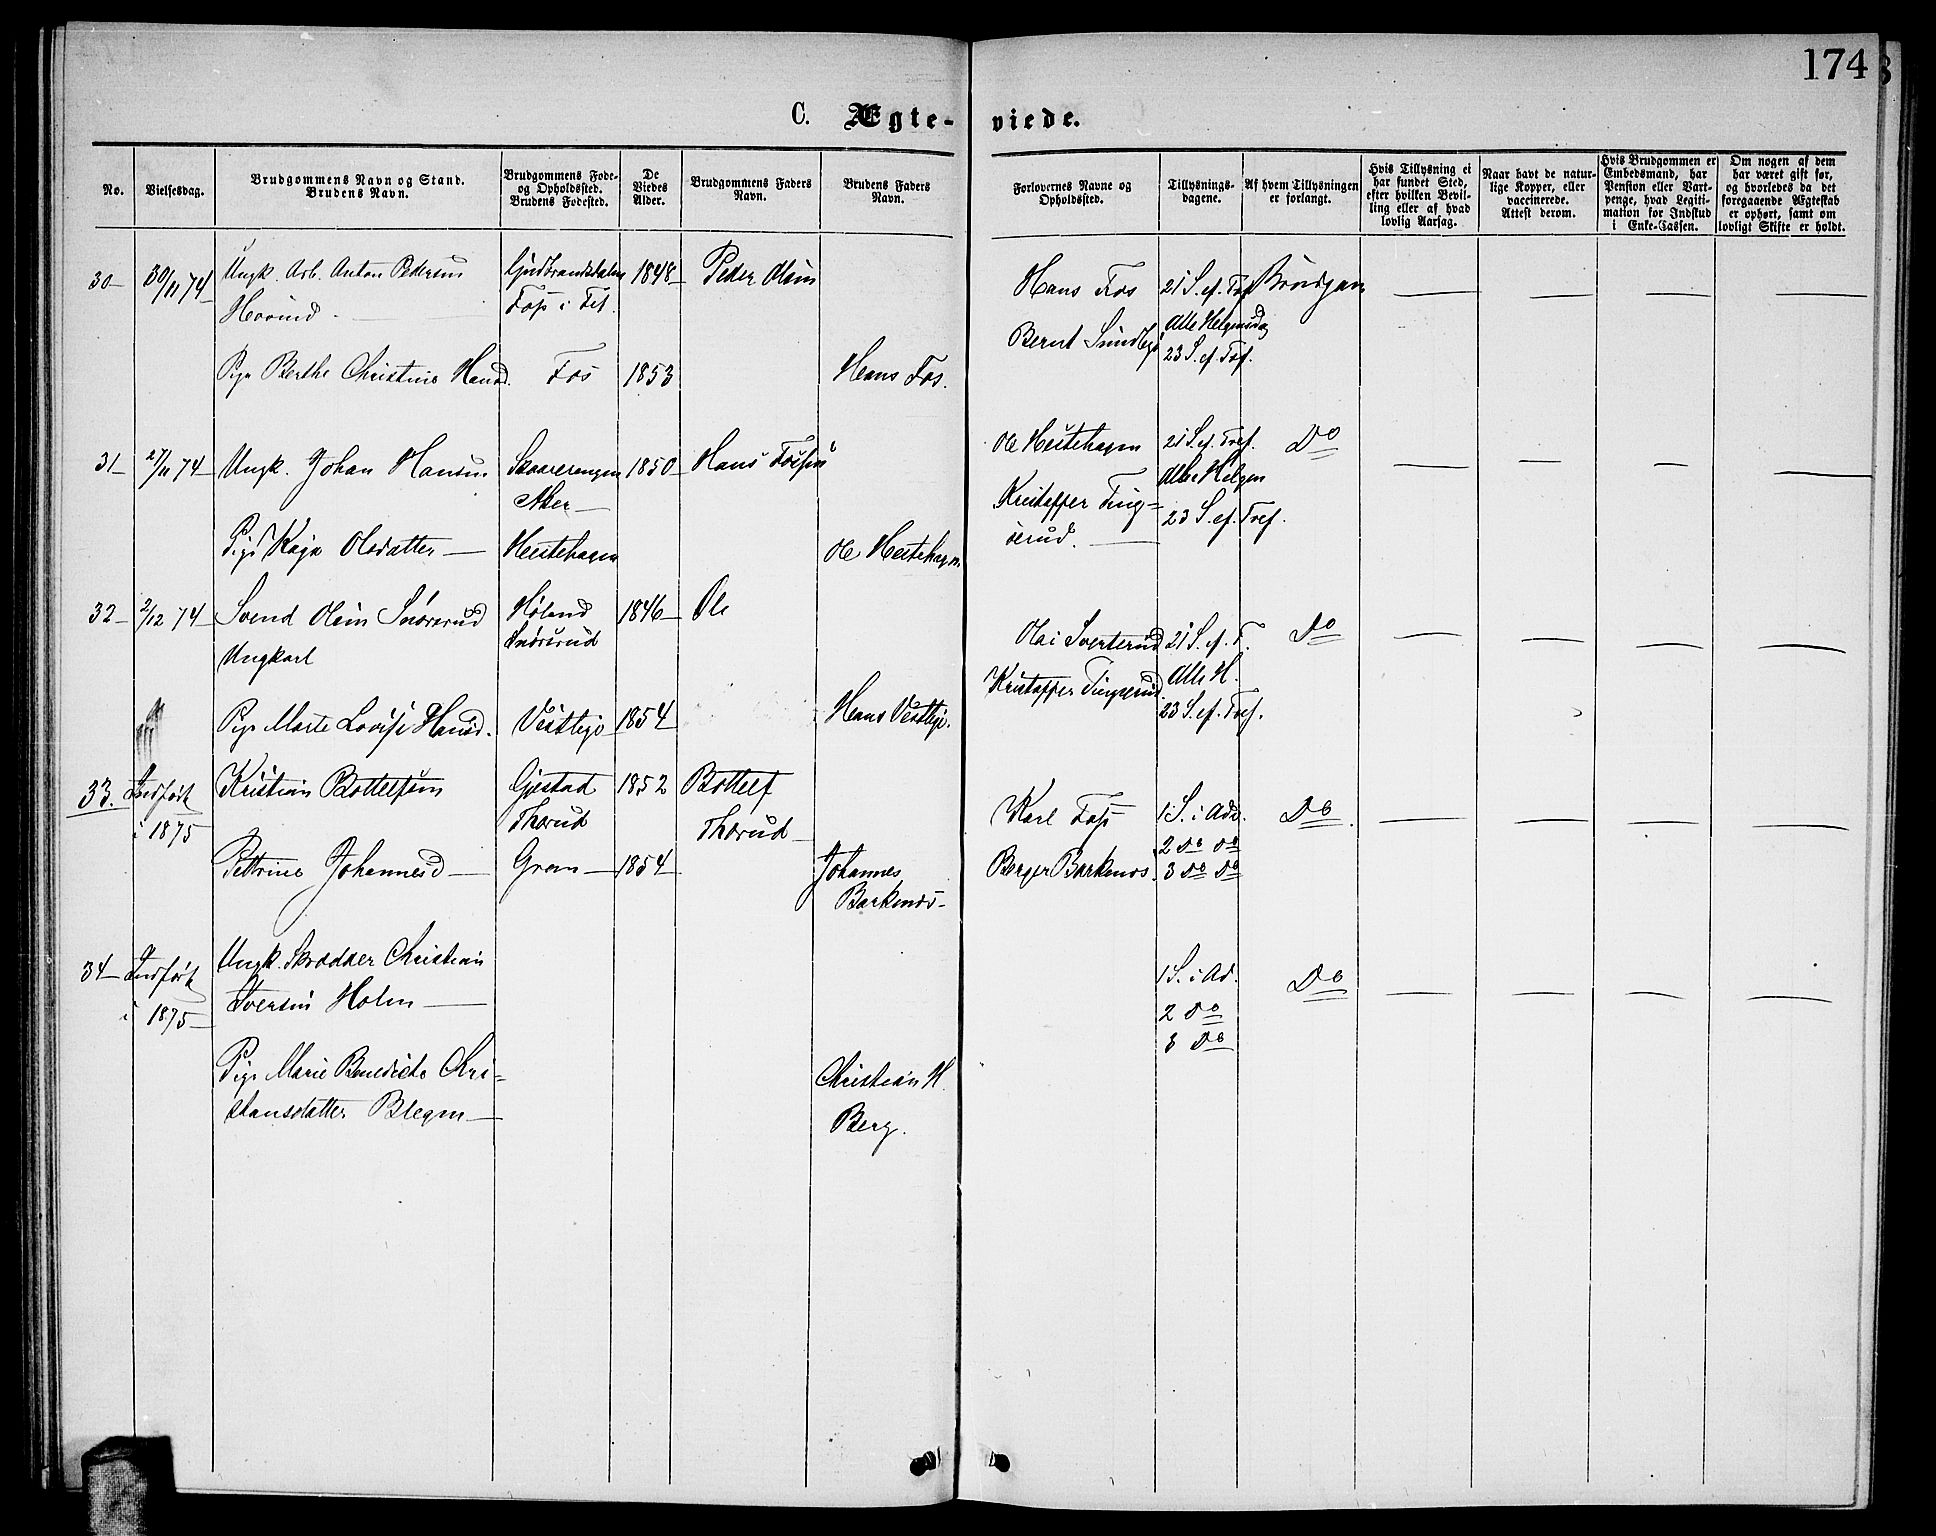 174
C. Ægte- viede.
No.
Vielsesdag.
Brudgommens Navn og Stand.
Brudens Navn.
Brudgommens Føde-
og Opholdssted.
Brudens Fødested.
De
Viedes
Alder.
Brudgommens Faders
Navn.
Brudens Faders
Navn.
Forlovernes Navne og
Opholdssted.
Tillysnings-
dagene.
Af hvem Tillysningen
er forlangt.
Hvis Tillysning ei
har fundet Sted,
efter hvilken Bevil-
ling eller af hvad
lovlig Aarsag.
Naar havt de natur-
lige Kopper, eller
vaccinerede.
Attest derom.
Hvis Brudgommen er
Embedsmand, har
Pension eller Vart-
penge, hvad Legiti-
mation for Indskud
i Enke-Cassen.
Om nogen af dem
har været gift før,
og hvorledes da det
foregaaende Ægteskab
er ophørt, samt om
lovligt Skifte er holdt.
30 – 30/11 74 – Ungk. Arb. Anton Pedersen Gudbrandsdalen 1848 – Peder Olsen Hans Fos 21 S. ef. Tref
Hovind – Foss i Fet. Bernt Alle Helgensdag
23 S. ef. Tref.
Pige Berthe Christine Hansd. Fos 1853 Hans Fos.
31 – 27/11 74 – Ungk. Johan Hansen Skaarerengen 1850 – Hans Ole Hestehagen 21 S. ef. Tref. Do
Aker – Kristoffer Ting= Alle Helgen
serud. 23 S. ef. Tref.
Pige Kaja Olsdatter – Hestehagen Ole Hestehagen
32 – 2/12 74 – Svend Olsen Snorerud Høland 1846 – Ole Svarterud 21 S. ef. T. Do
Ungkarl Kristoffer Tingserud Alle H.
23 S. ef. Tref.
Pige Marte Lovise Hansd. Vestlige 1854 Hans Vestlige.
33. Indført Kristian Bottelfsen Gjestad 1852 Bottelf Karl Foss 1 S. i Adv. Do
i 1875 Thorud Thorud – 2 Do Do
Pettrine Johannesd – Gran – 1854 Johannes Berger Barkenes. 3 Do Do
Barkenes –
34 – Indført Ungk. Skrædder Christian 1 S. i Ad. Do
i 1875 – Iversen Holm – 2 Do
3 Do
Pige Marie Benedicte Chri- Christian H.
stiansdatter Blegen – Berg.